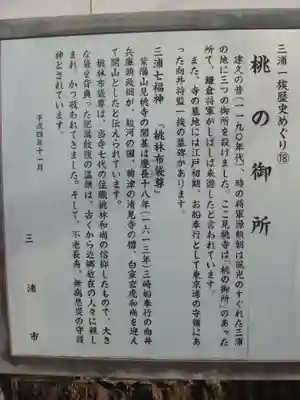 三浦一族歴史めぐり⑱
桃の御所
建久の昔(一一九〇年代)、時の将軍源頼朝は風光のすぐれた三浦
の地に三つの御所を設けました。ここ見桃寺は「桃の御所」のあった
所で、鎌倉将軍がしばしば来遊したと言われています。
また、寺の墓地には江戸初期、お船奉行として東京湾の守備にあ
った向井将監一族の墓碑があります。
三浦七福神「桃林布袋尊」
紫陽山見桃寺の開基は慶長十八年(一六一三年)三崎船奉行の向井
兵庫頭政綱が、駿河の国、興津の清見寺の僧、白室玄虎和尚を迎え
て開山したと伝えられています。
桃林布袋尊は、当寺七代の住職桃林和尚の信仰したもので、大き
な袋を背負った肥満鼓腹の温顔は、古くから近郷近在の人々に親し
まれ、かつ敬われてきました。そして、不老長寿、無病息災の守護
神とされています。
平成四年十一月
三浦市